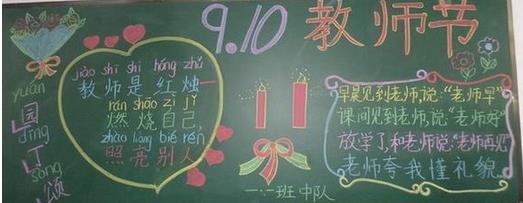 9.10 教师节
yuán
园
dīng
丁
sòng
颂
jiào shī shì hóng zhú
教师是红烛
rán shāo zì jǐ
燃烧自己,
zhào liàng bié rén
照亮别人
早晨见到老师,说:“老师早”
课间见到老师,说:“老师好”
放学了,和老师说:“老师再见”
老师夸我懂礼貌
一·一班中队